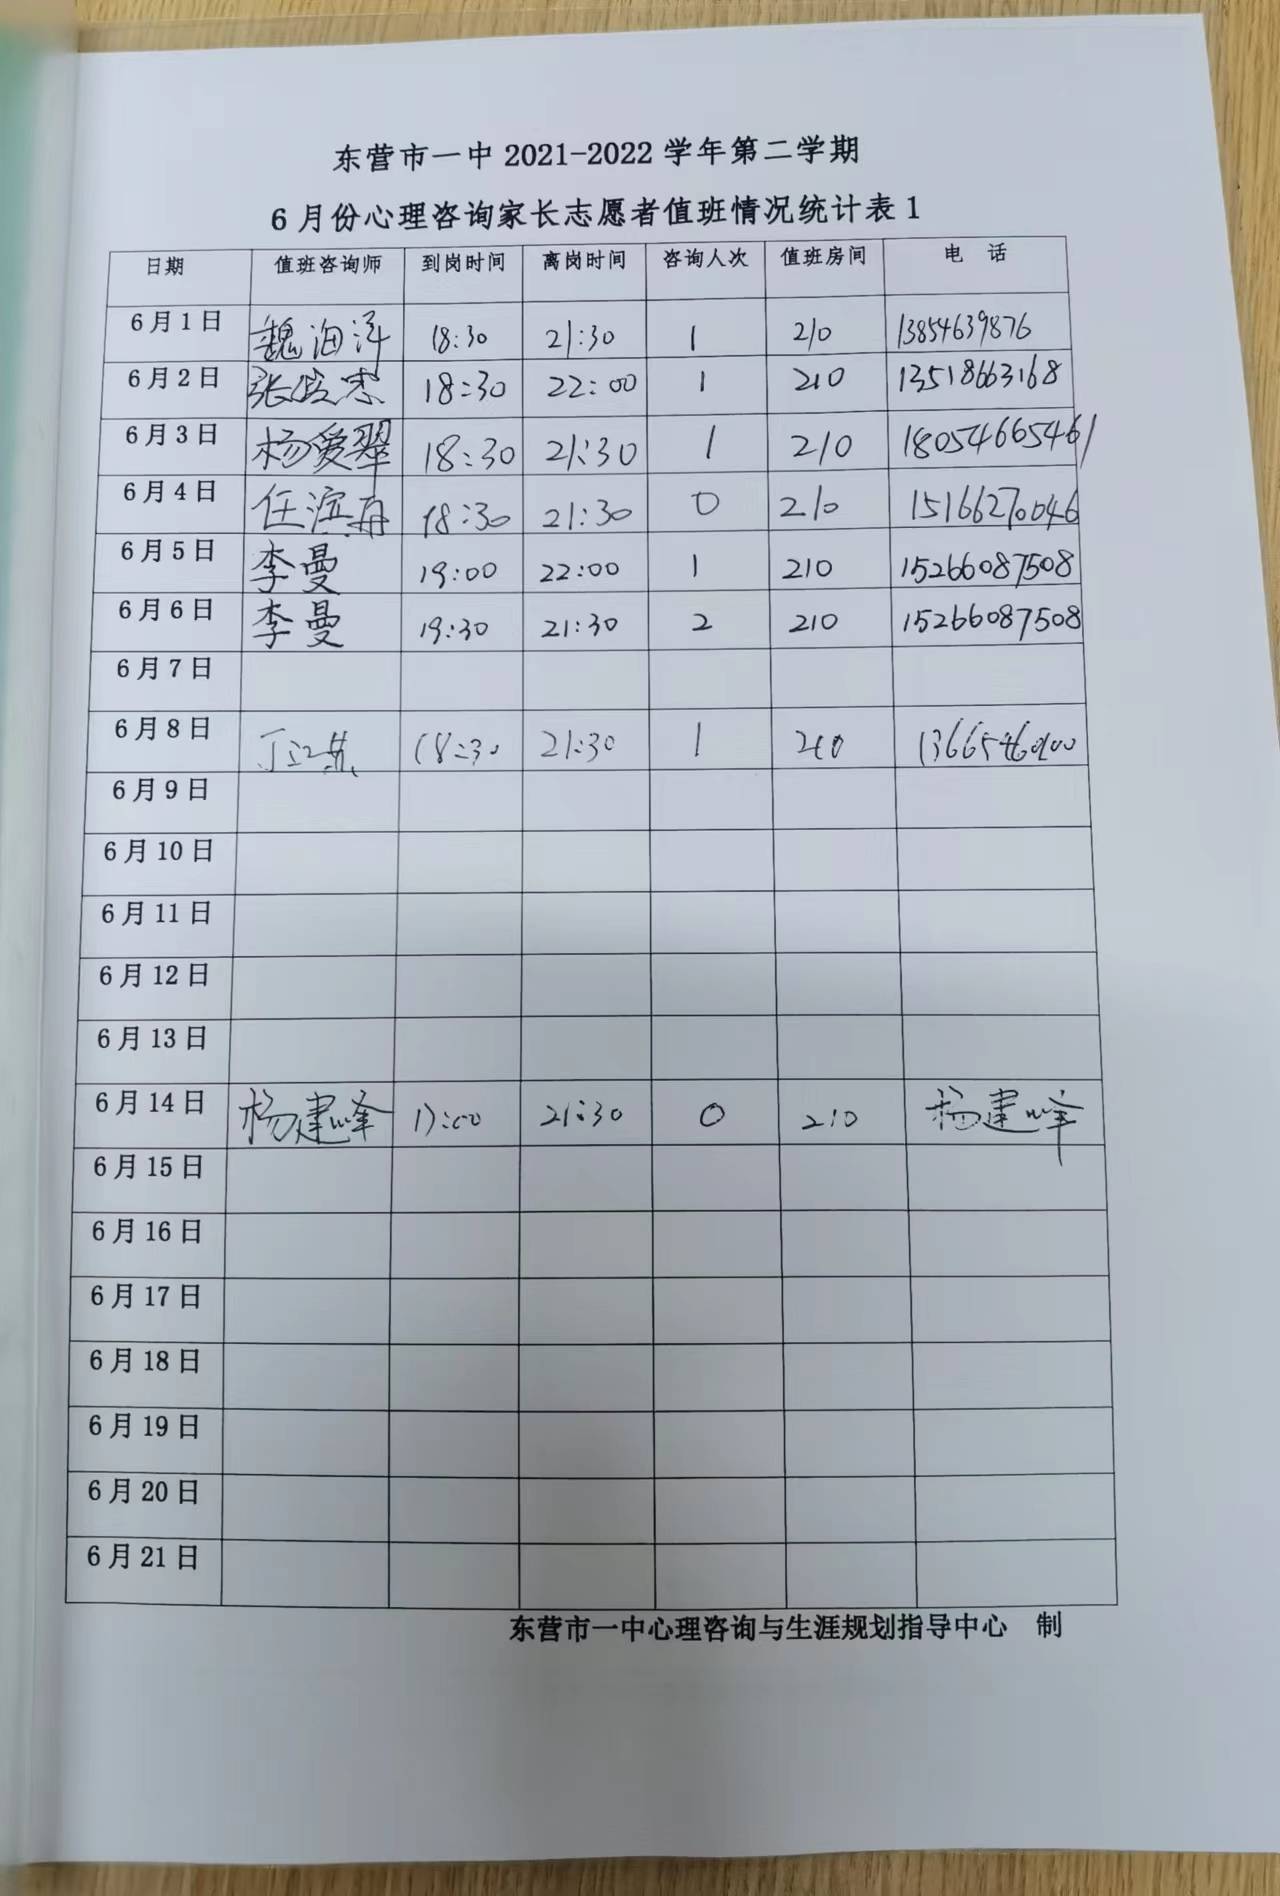 东营市一中 2021-2022 学年第二学期
6 月份心理咨询家长志愿者值班情况统计表 1
日期 值班咨询师 到岗时间 离岗时间 咨询人次 值班房间 电 话
6 月 1 日 魏海洋 18:30 21:30 1 210 13854639876
6 月 2 日 22:00 18:30 1 210 13518663168
6 月 3 日 杨爱翠 18:30 21:30 1 210 18054665461
6 月 4 日 任滨 18:30 21:30 0 210 15166270046
6 月 5 日 李曼 19:00 22:00 1 210 15266087508
6 月 6 日 李曼 19:30 21:30 2 210 15266087508
6 月 7 日
6 月 8 日 18:30 21:30 1 210
6 月 9 日
6 月 10 日
6 月 11 日
6 月 12 日
6 月 13 日
6 月 14 日 杨建峰 17:00 21:30 0 210 杨建峰
6 月 15 日
6 月 16 日
6 月 17 日
6 月 18 日
6 月 19 日
6 月 20 日
6 月 21 日
东营市一中心理咨询与生涯规划指导中心 制